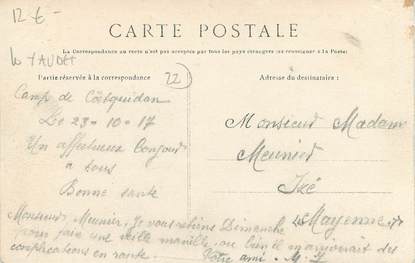 12 €-
CARTE POSTALE
La Correspondance au recto n'est pas acceptée par tous les pays étrangers (se renseigner à la Poste)
Le YAUDET
Partie réservée à la correspondance
22
Adresse du destinataire :
Camp de Coëtquidan
Le 23-10-17
Un affectueux bonjour
à tous
Bonne santé
Monsieur Meunier. Je vous retiens Dimanche
pour faire une manille, ou bien il
complications en route.
Votre ami
Monsieur Madame
Meunier
Izé
Mayenne